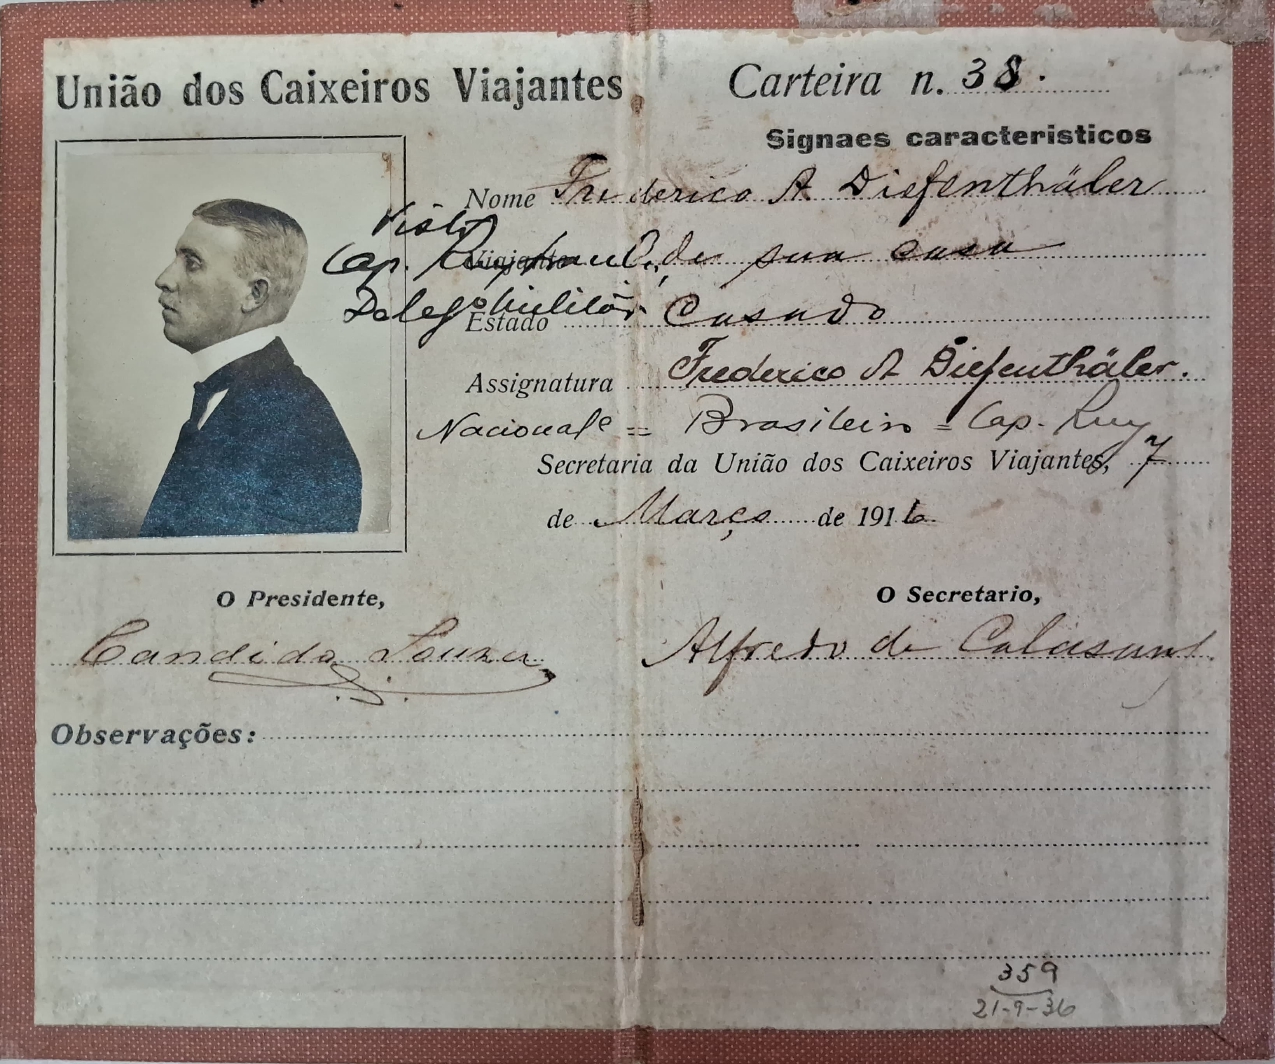 União dos Caixeiros Viajantes
Carteira n. 38.
Signaes caracteristicos
Nome Frederico A. Diefenthäler
Visto
Viajante de sua casa
Cap.
Deleg. Militar
Estado Casado
Assignatura Frederico A Diefenthäler.
Nacional^e = Brasileiro = Cap. Ruy
Secretaria da União dos Caixeiros Viajantes, 7
de Março de 1916
O Presidente,
O Secretario,
Candido Souza
Alfredo de
Observações:
359
21-9-36